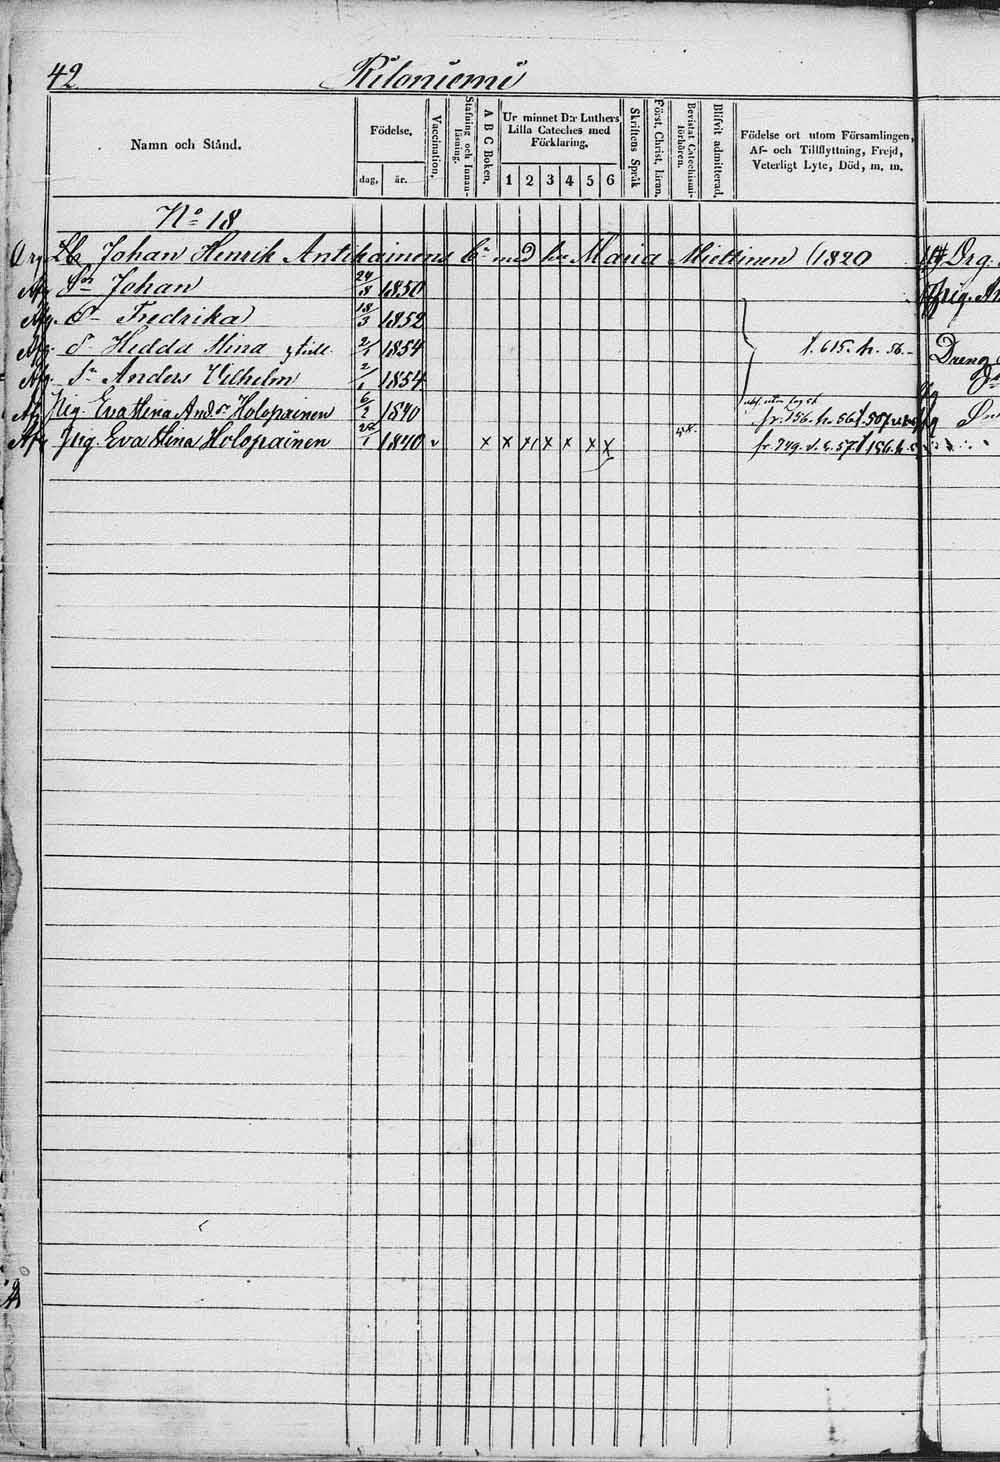 42. Riloniemi
Namn och Stånd.
Födelse.
dag.
år.
Vaccination.
Stafning och Innanläsning.
A B C Boken.
Ur minnet D:r Luthers Lilla Cateches med Förklaring.
1 2 3 4 5 6
Skriftens Språk
Först. Christ. läran.
Bevistat Catechismiförhören.
Blifvit admitterad.
Födelse ort utom Församlingen,
Af- och Tillflyttning, Frejd,
Veterligt Lyte, Död, m. m.
No 18
Johan Henrik Antikainens med hu Maria Miettinen (1820 Drg.
Afg. Sn Johan 24/8 1850
Afg. Dr Fredrika 18/3 1852
Afg. Dr Hedda Stina 2/1 1854 t. 615. h. 56.
Afg. Sn Anders Vilhelm 2/1 1854
Afg. Pig. Eva Stina And.dr Holopainen 6/2 1840 fr. 156. h. 56
Afg. Pig Eva Stina Holopainen 1840 v x x x x x x x x fr. 749. 57. t 156. h.